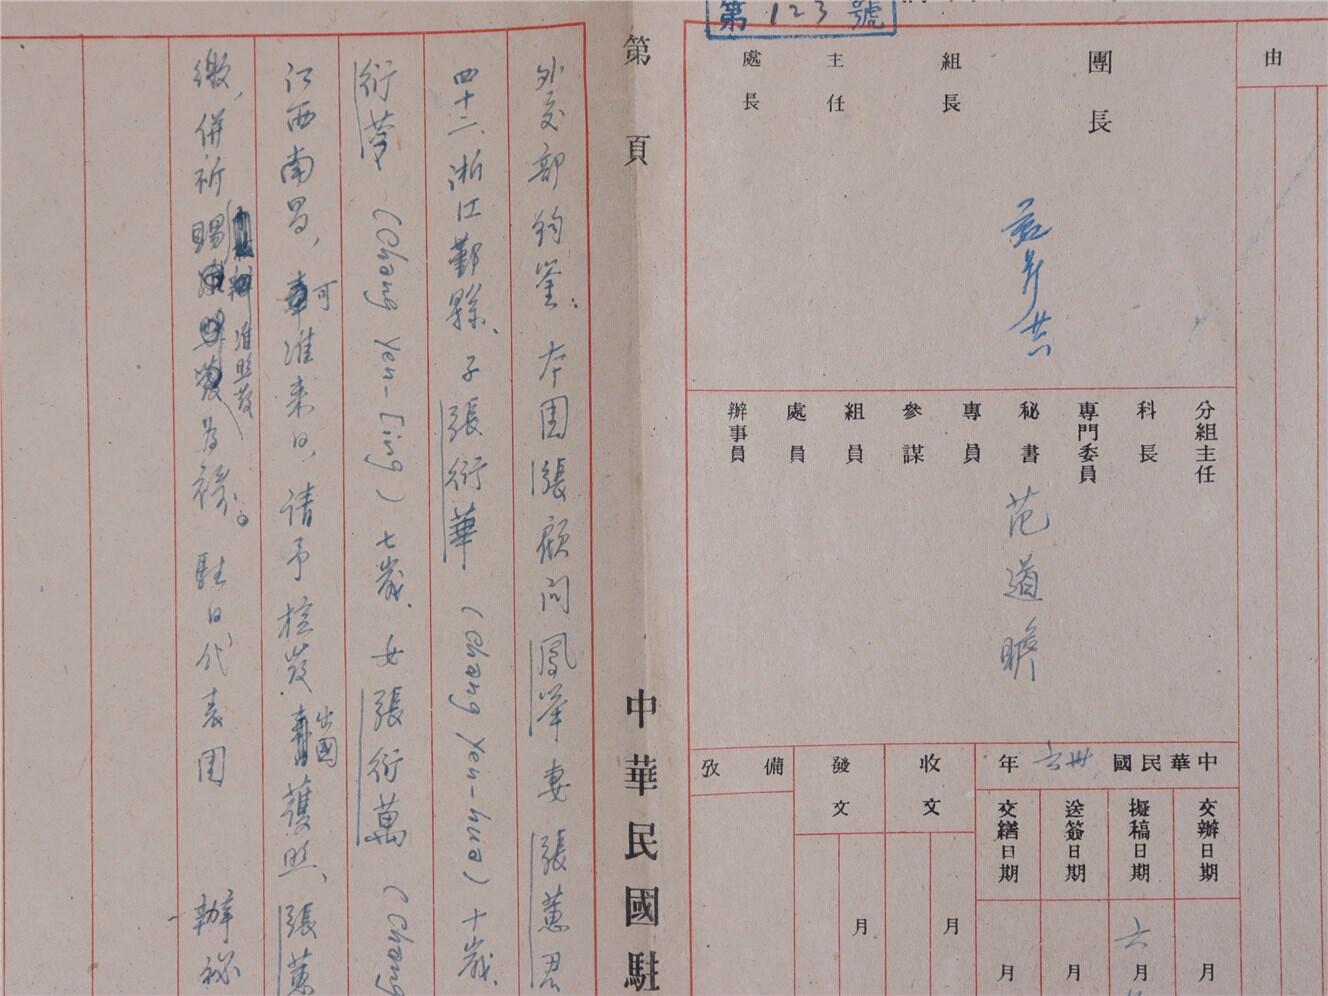 第123號
由
團長
組長
主任
處長
分組主任
科長
專門委員
秘書 范道瞻
專員
參謀
組員
處員
辦事員
中華民國卅六年
交辦日期 月
擬稿日期 六月
送簽日期 月
交繕日期 月
收文 月
發文 月
備攷
第 頁 中華民國駐
外交部鈞鑒:本團張顧問鳳舉妻張蕙君
四十二、浙江鄞縣、子張衍華(Chang Yen-hua)十歲、
衍蓤(Chang Yen-ling)七歲、女張衍萬(Chang
江西南昌,可准來日,請予核發出國護照、張蕙
繳,併祈賜准照發為禱。駐日代表團 辦秘